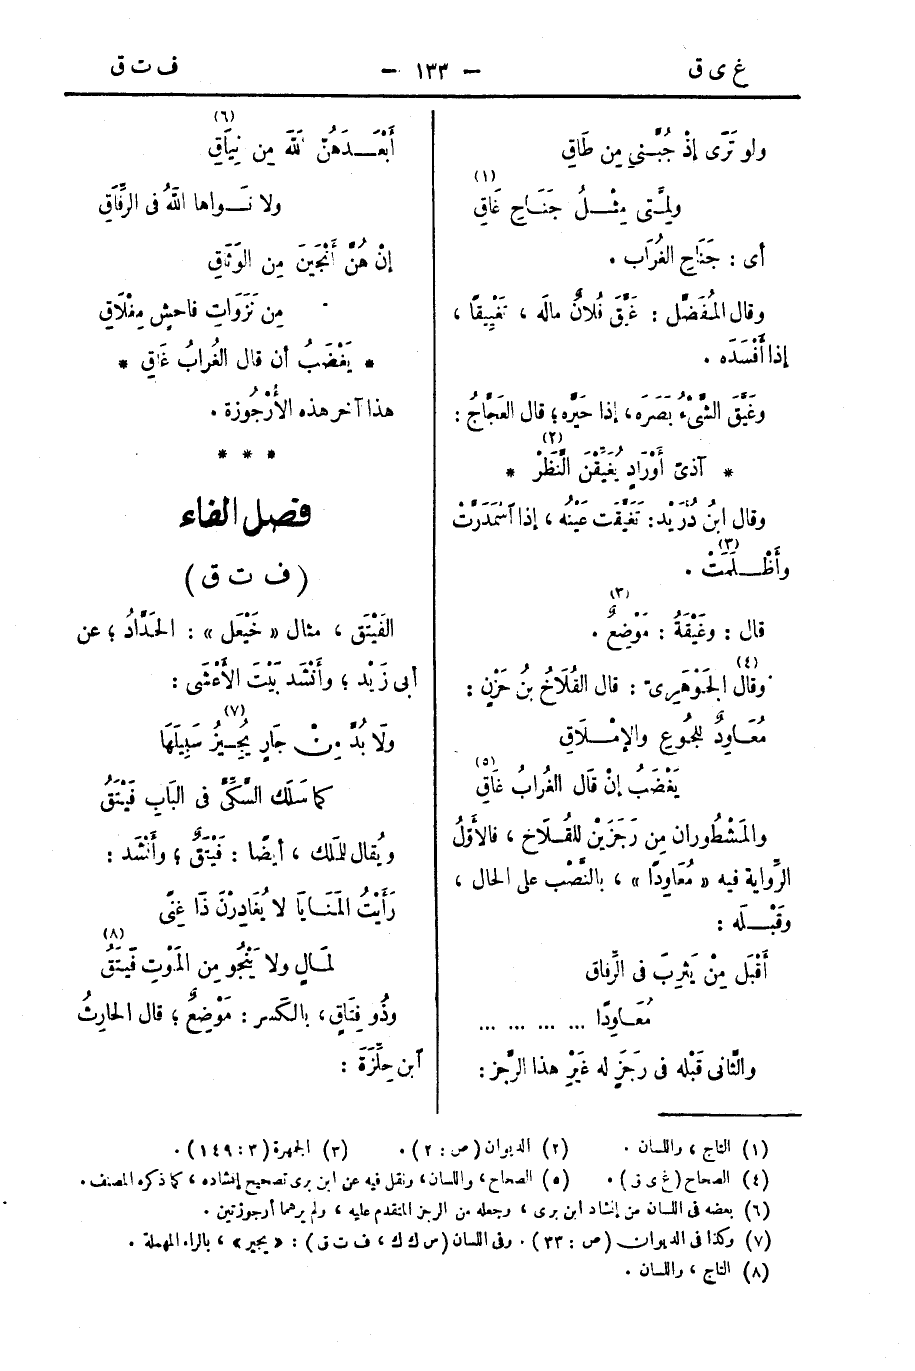 غ ى ق
— ١٣٣ —
ف ت ق
ولو تَرَى إذْ جُبَّتي مِن طَاقِ
ولِمَّتى مِثْــلُ جَنَــاحِ غَاقِ (١)
أى : جَنَاحِ الغُرَاب .
وقال المُفَضَّل : غَيَّقَ فُلانٌ مالَه ، تَغْيِيقًا ،
إذا أَفْسَدَه .
وغَيَّقَ الشَّىْءُ بَصَرَه ، إذا حَيَّره ؛ قال العَجَّاجُ :
* آذِىُّ أَوْرَادٍ يُغَيِّقْنَ النَّظَرْ * (٢)
وقال ابنُ دُرَيْد : تَغَيَّقت عَيْنُه ، إذا ٱسْمَدَرَّتْ
وأَظْــلَمَتْ . (٣)
قال : وغَيْقَةُ : مَوْضِعٌ . (٣)
وقال الجَوْهَرِىّ (٤) : قال القُلَاخُ بنُ حَزْنٍ :
مُعَــاوِدٌ للجُوعِ والإمْــلَاقِ
يَغْضَبُ إنْ قَال الغُرابُ غَاقِ (٥)
والمَشْطُوران مِن رَجَزَيْن للقُــلَاخ ، فالأَوّلُ
الرِّواية فيه « مُعَاودًا » ، بالنَّصْب على الحال ،
وقَبْــلَه :
أَقْبَل مِنْ يَثْرِبَ فى الرِّفاق
مُعَــاوِدًا ... ... ... ...
والثَّانى قَبْلَه فى رَجَزٍ له غَيْرِ هذا الرَّجز :
أَبْعَــدَهُنّ اللهُ مِن نِيَاقِ (٦)
ولا نَــواها اللهُ فى الرِّفَاقِ
إنْ هُنَّ أَنْجَيْنَ مِن الوَثَاقِ
مِن نَزَوَاتِ فاحشٍ مِغْلَاقِ
* يَغْضَبُ أن قال الغُرابُ غَاقِ *
هذا آخر هذه الأُرْجُوزة .
* * *
فصل الفاء
(ف ت ق)
الفَيْتَق ، مثال « خَيْعَل » : الحَدَّادُ ؛ عن
أبى زَيْد ؛ وأَنْشَد بَيْتَ الأَعْشَى :
ولَا بُدَّ مِنْ جَارٍ يُجِــيزُ سَبِيلَهَا (٧)
كما سَلَك السَّكِّىَّ فى البَابِ فَيْتَقُ
ويُقال للمَلك ، أيضًا : فَيْتَقٌ ؛ وأَنْشَد :
رَأَيْتُ المَنَــايَا لا يُغَادِرْنَ ذَا غِنًى
لمَــالٍ ولا يَنْجُو مِن المَوْتِ فَيْتَقُ (٨)
وذُو فِتَاقٍ ، بالكَسر : مَوْضِعٌ ؛ قال الحارِثُ
ٱبن حِلِّزَةَ :
(١) التاج ، واللسان . (٢) الديوان (ص : ٢) . (٣) الجمهرة (٣ : ١٤٩) .
(٤) الصحاح (غ ى ق) . (٥) الصحاح ، واللسان ، ونقل فيه عن ابن برى تصحيح إنشاده ، كما ذكره المصنف .
(٦) بعضه فى اللسان من إنشاد ابن برى ، وجعله من الرجز المتقدم عليه ، ولم يرهما أرجوزتين .
(٧) وكذا فى الديوان (ص : ٣٣) . وفى اللسان (س ك ك ، ف ت ق) : « يجير » ، بالراء المهملة .
(٨) التاج ، واللسان .